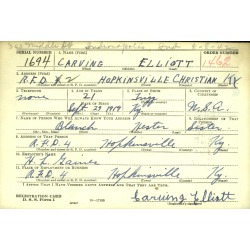 SERIAL NUMBER 1. NAME (Print) ORDER NUMBER
1694 CARVING ELLIOTT 1462
2. ADDRESS (Print)
R.F.D. #2 HOPKINSVILLE CHRISTIAN Ky
3. TELEPHONE 4. AGE IN YEARS 5. PLACE OF BIRTH 6. COUNTRY OF CITIZENSHIP
none 21 Trigg
DATE OF BIRTH
Sept 29 1919 Ky U.S.A.
7. NAME OF PERSON WHO WILL ALWAYS KNOW YOUR ADDRESS 8. RELATIONSHIP OF THAT PERSON
Blanch Nester Sister
9. ADDRESS OF THAT PERSON
R.F.D. 4 Hopkinsville Ky
10. EMPLOYER'S NAME
Gaines
11. PLACE OF EMPLOYMENT OR BUSINESS
R.F.D. 4 Hopkinsville Ky
I AFFIRM THAT I HAVE VERIFIED ABOVE ANSWERS AND THAT THEY ARE TRUE.
REGISTRATION CARD
D. S. S. Form 1 Carving Elliott